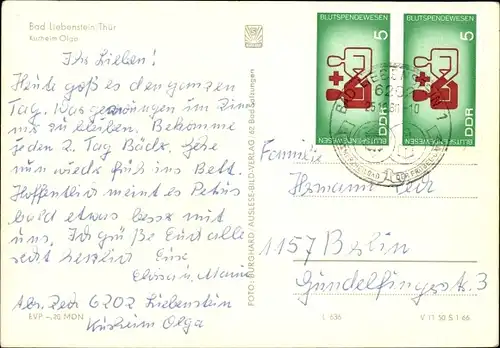 Bad Liebenstein, Thür
Kurheim Olga
Ihr Lieben!
Heute goß es den ganzen
Tag, was gezwungen im Zim
mer zu bleiben. Bekomme
jeden 2. Tag Bäder. Gehe
nun wieder früh ins Bett.
Hoffentlich meint es Petrus
bald etwas besser mit
uns. Ich grüße Euch alle
recht herzlich Eure
u.
Abs. 6202 Liebenstein
Kurheim Olga
EVP –.20 MDN
FOTO: BURGHARD / AUSLESE-BILD-VERLAG · 62 Bad Salzungen
BLUTSPENDEWESEN
5
DDR
BLUTSPENDEWESEN
BLUTSPENDEWESEN
5
DDR
BLUTSPENDEWESEN
BAD LIEBENSTEIN 1
6202
Familie
Hermann
1157 Berlin
Gundelfingerstr. 3
L 636
V 11 50 S 1 66